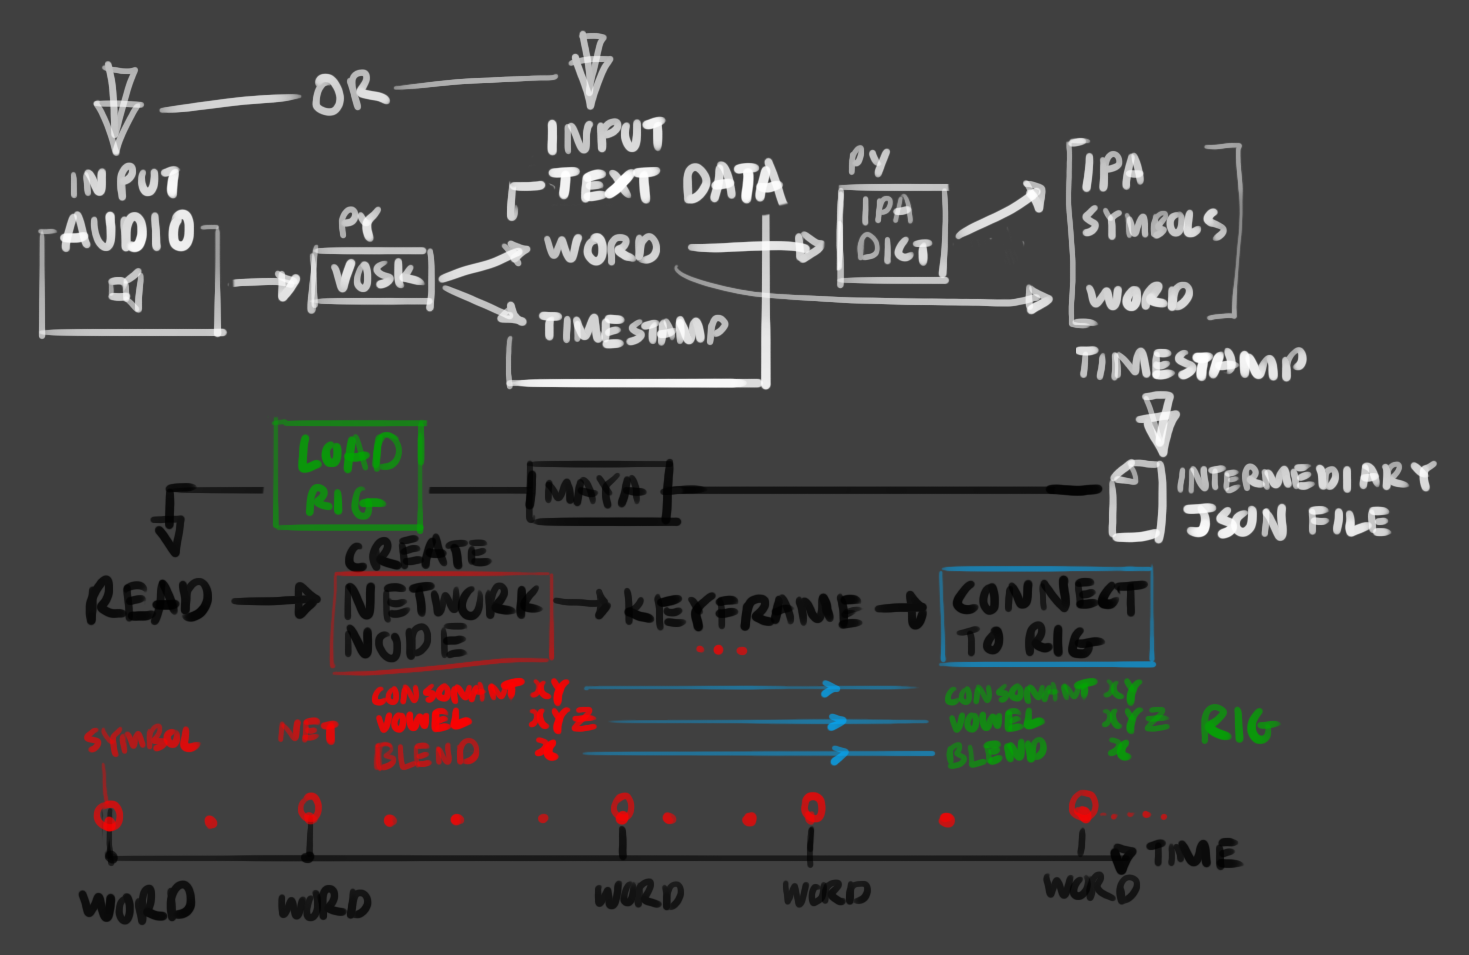 OR
INPUT
AUDIO
PY
VOSK
INPUT
TEXT DATA
WORD
TIMESTAMP
PY
IPA
DICT
IPA
SYMBOLS
WORD
TIMESTAMP
INTERMEDIARY
JSON FILE
MAYA
LOAD
RIG
READ
CREATE
NETWORK
NODE
KEYFRAME
...
CONNECT
TO RIG
SYMBOL
NET
CONSONANT XY
VOWEL XYZ
BLEND X
CONSONANT XY
VOWEL XYZ
BLEND X
RIG
TIME
WORD
WORD
WORD
WORD
WORD